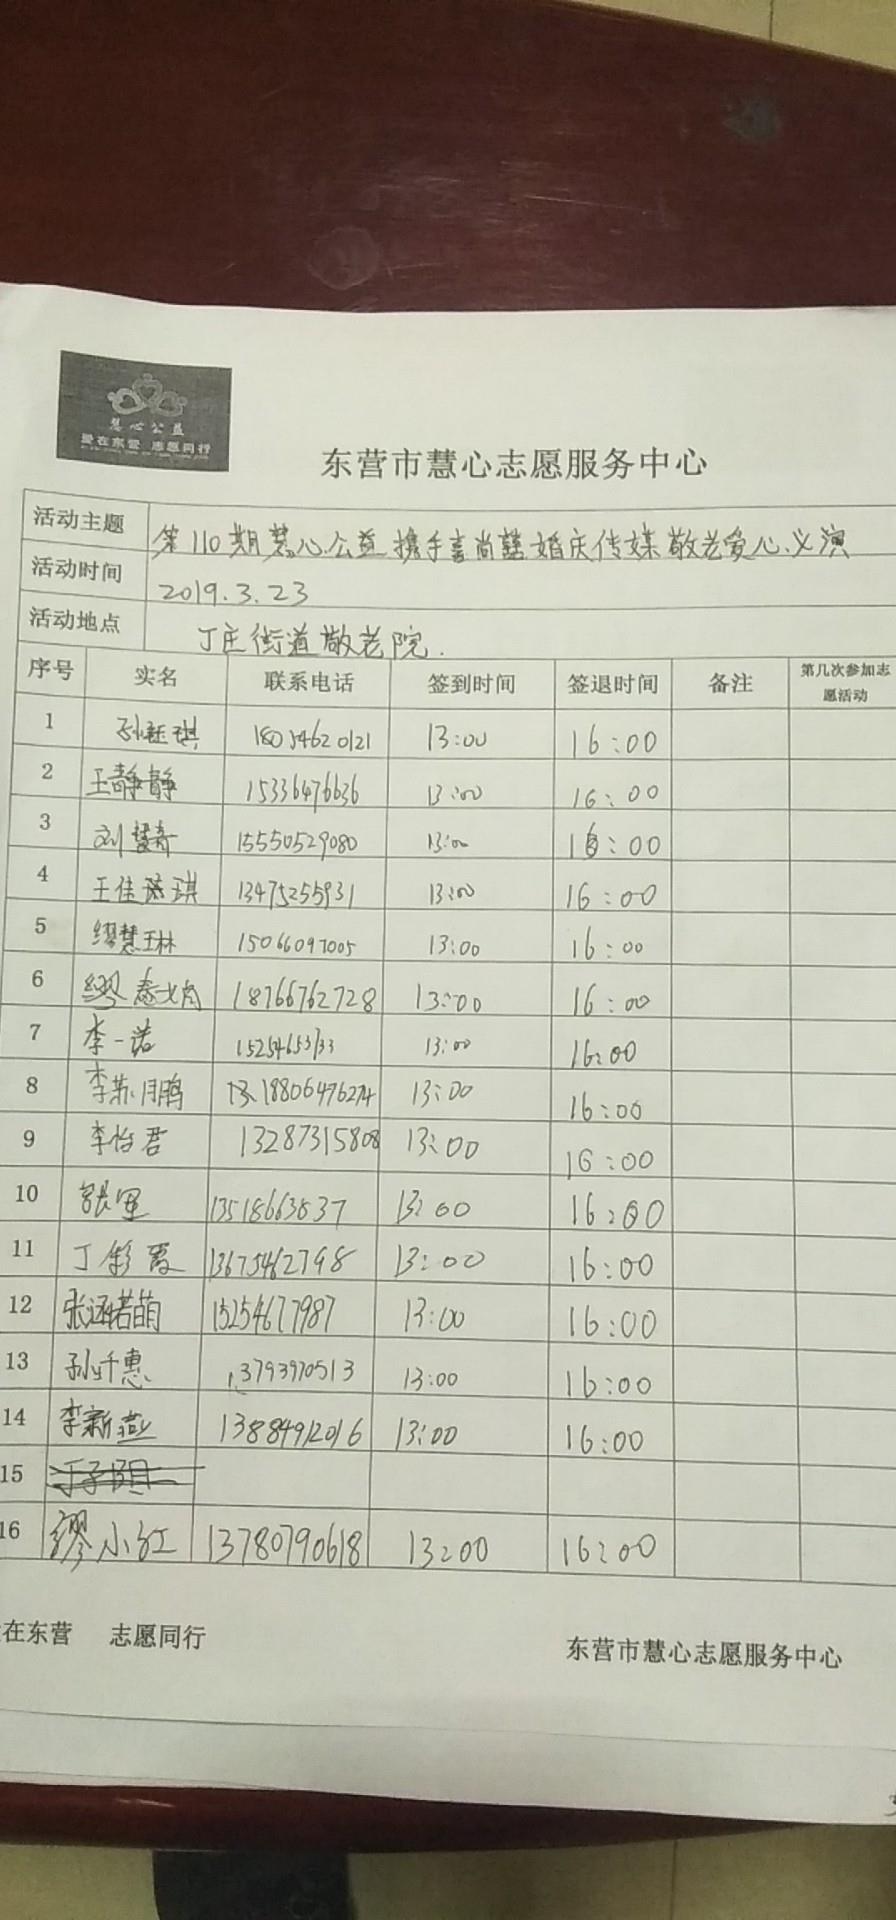 慧心公益
爱在东营 志愿同行
东营市慧心志愿服务中心
活动主题 第110期慧心公益携手喜尚喜婚庆传媒敬老爱心义演
活动时间 2019.3.23
活动地点 丁庄街道敬老院.
序号 实名 联系电话 签到时间 签退时间 备注 第几次参加志愿活动
1 孙钰琪 18054620121 13:00 16:00
2 王静静 15336476636 13:00 16:00
3 刘慧奇 15550529080 13:00 16:00
4 王佳琪 13475255931 13:00 16:00
5 缪慧琳 15066097005 13:00 16:00
6 缪 18766762728 13:00 16:00
7 李一诺 15254653133 13:00 16:00
8 李苏鹏 18806476274 13:00 16:00
9 李怡君 13287315808 13:00 16:00
10 张军 13518663837 13:00 16:00
11 丁彩霞 13675462798 13:00 16:00
12 张涵若萌 15254677987 13:00 16:00
13 孙千惠 13793970513 13:00 16:00
14 李新燕 13884912016 13:00 16:00
15
16 缪小红 13780790618 13:00 16:00
在东营 志愿同行 东营市慧心志愿服务中心